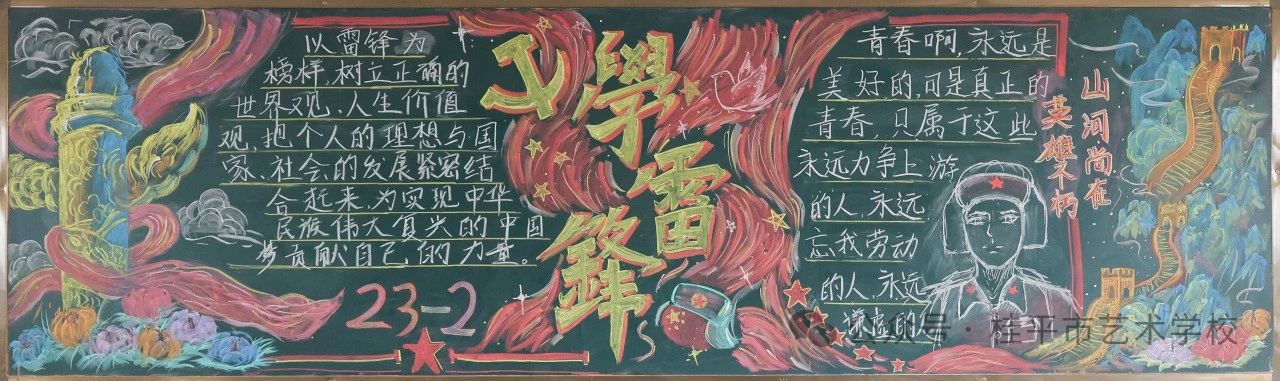 以雷锋为
榜样，树立正确的
世界观、人生价值
观，把个人的理想与国
家、社会的发展紧密结
合起来，为实现中华
民族伟大复兴的中国
梦贡献自己的力量。
23-2
學
雷
鋒
青春啊，永远是
美好的，可是真正的
青春，只属于这些
永远力争上游
的人，永远
忘我劳动
的人，永远
谦虚的人
山河尚在
英雄不朽
公众号·桂平市艺术学校